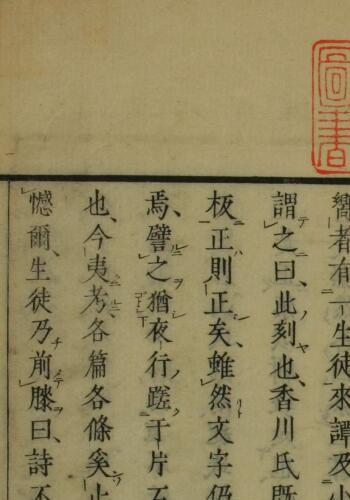 圖書
嚮者有一生徒來譚及
謂之曰、此刻也、香川氏既
板正則正矣、雖然文字仍
焉、譬之猶夜行、蹉于片石
也、今夷考各篇各條、奚止
憾爾、生徒乃前席曰、詩不